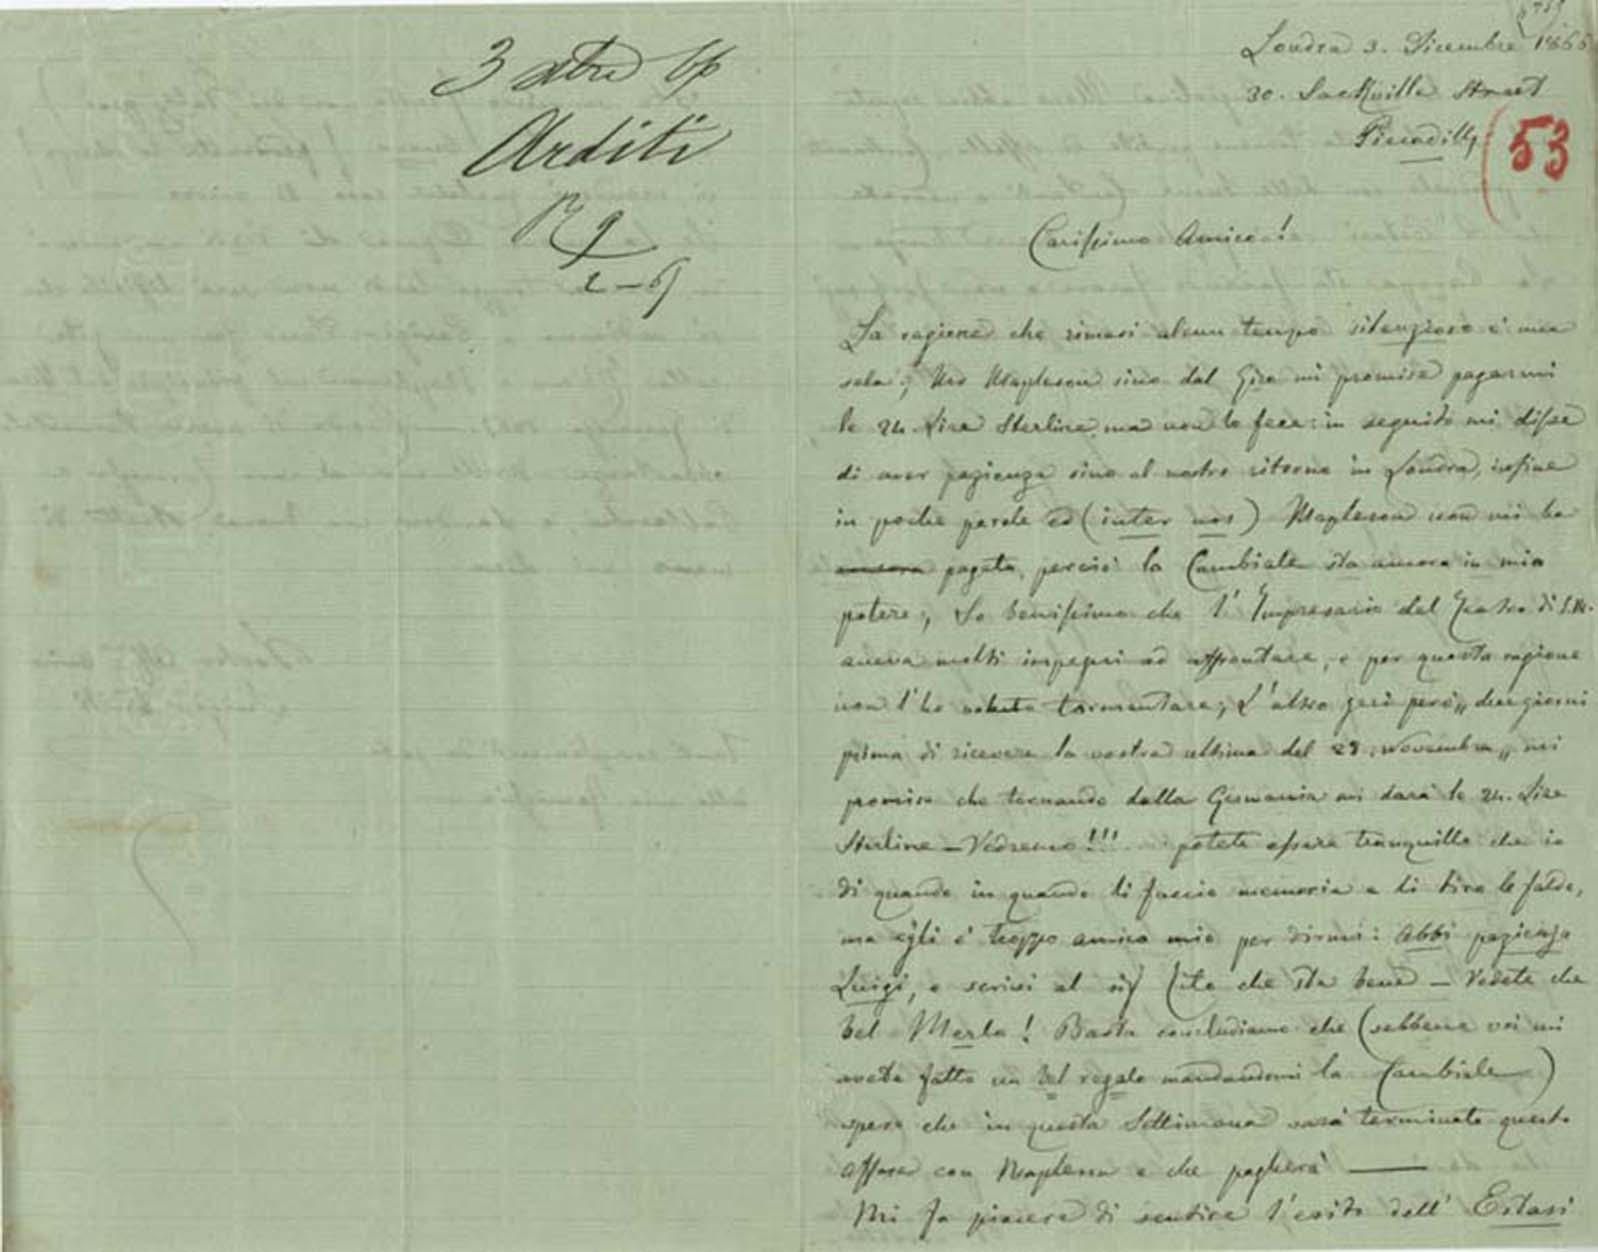 3 xbre 66
Arditi
R 9
2-67
Londra 3. Dicembre 1866
30. Sackville Street
Piccadilly
53
Carissimo Amico!
La ragione che rimasi alcun tempo silenzioso è una
sola; Mapleson sino dal mi promise pagarmi
le 24. Lire Sterline, ma non lo fece: in seguito mi disse
di aver pazienza sino al nostro ritorno in Londra, infine
in poche parole ed (inter nos) Mapleson non mi ha
ancora pagato, perciò la Cambiale sta ancora in mio
potere; So benissimo che l'Impresario del Teatro di S.M.
aveva molti impegni ad affrontare, e per questa ragione
non l'ho voluto tormentare; L'altro jeri però,, due giorni
prima di ricevere la vostra ultima del 29. Novembre,, mi
promise che tornando dalla Germania mi darà le 24. Lire
Sterline – Vedremo!!! potete essere tranquillo che io
di quando in quando li faccio memoria e li tiro le falde,
ma egli è troppo amico mio per dirmi: Abbi pazienza
Luigi, e scrivi al Tito che sta bene – Vedete che
bel Merlo! Basta concludiamo che (sebbene voi mi
avete fatto un bel regalo mandandomi la Cambiale)
spero che in questa Settimana sarà terminato questo
affare con Mapleson e che pagherà ——
Mi fa piacere di sentire l'esito dell' Estasi